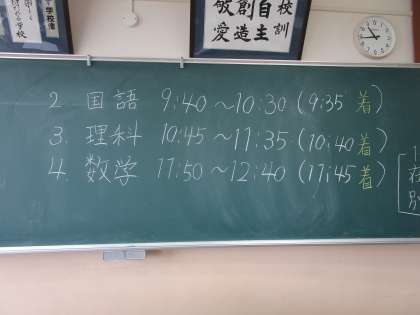 校訓
自主
創造
敬愛
2. 国語 9:40 〜10:30 (9:35 着)
3. 理科 10:45 〜11:35 (10:40 着)
4. 数学 11:50 〜12:40 (11:45 着)